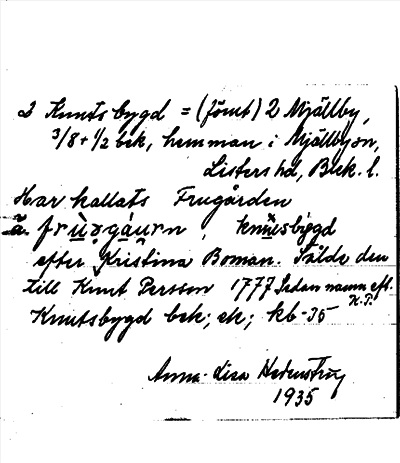 2 Knutsbygd = (förut) 2 Mjällby,
3/8 + 1/2 bek, hemman i Mjällby sn,
Listers hd, Blek. l.
Har kallats Frugården
ā. frùgàurn, knusbygd
efter Kristina Boman. Sålde den
till Knut Persson 1777 Sedan namn eft.
K.P.
Knutsbygd bek; ek; kb-35
Anna-Lisa
1935